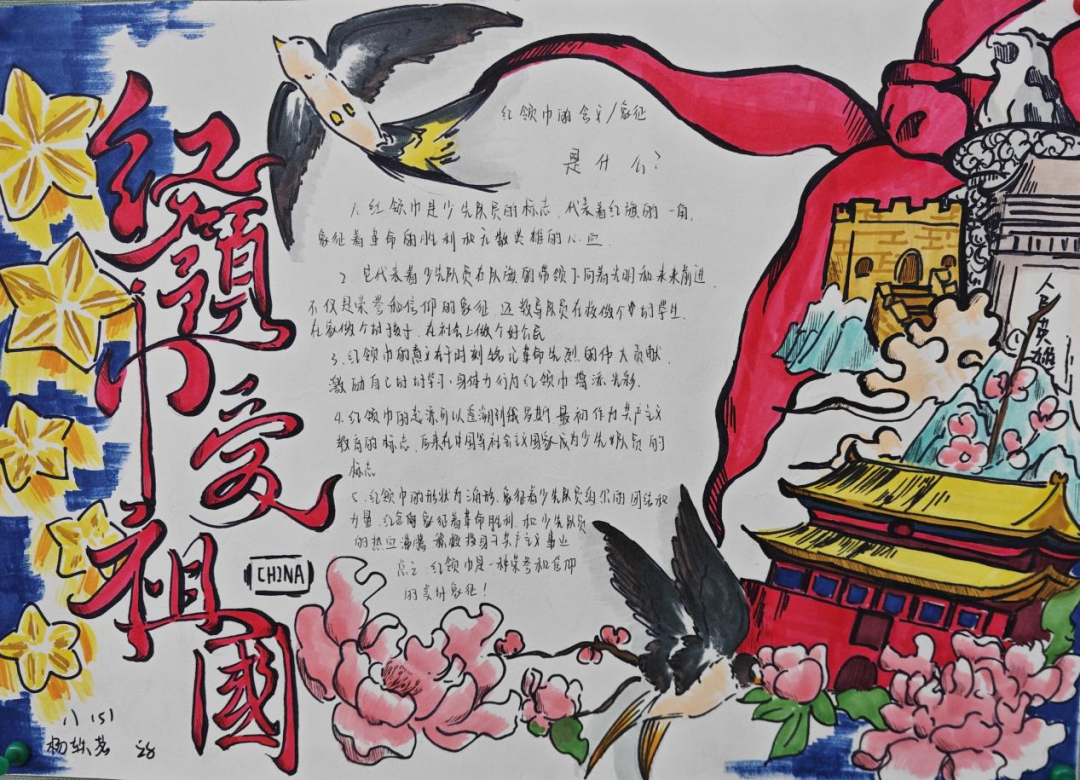 红領巾
爱祖國
CHINA
红领巾的含义/象征
是什么?
1. 红领巾是少先队员的标志, 代表着红旗的一角,
象征着革命的胜利和无数英雄的心血.
2. 它代表着少先队员在队旗的带领下向着光明和未来前进,
不仅是荣誉和信仰的象征, 还教导队员在校做个好学生,
在家做个好孩子, 在社会上做个好公民
3. 红领巾的意义有时刻铭记革命先烈的伟大贡献,
激励自己好好学习, 身体力行为红领巾增添光彩.
4. 红领巾的起源可以追溯到俄罗斯 最初作为共产主义
教育的标志, 后来在中国等社会主义国家成为少先队员的
标志
5. 红领巾的形状为三角形, 象征着少先队员组织的团结和
力量. 红色象征着革命胜利 和少先队员
的热血沸腾 投身于共产主义事业
总之 红领巾是一种荣誉和信仰
的美好象征!
人民英雄
八 (5)
杨
28